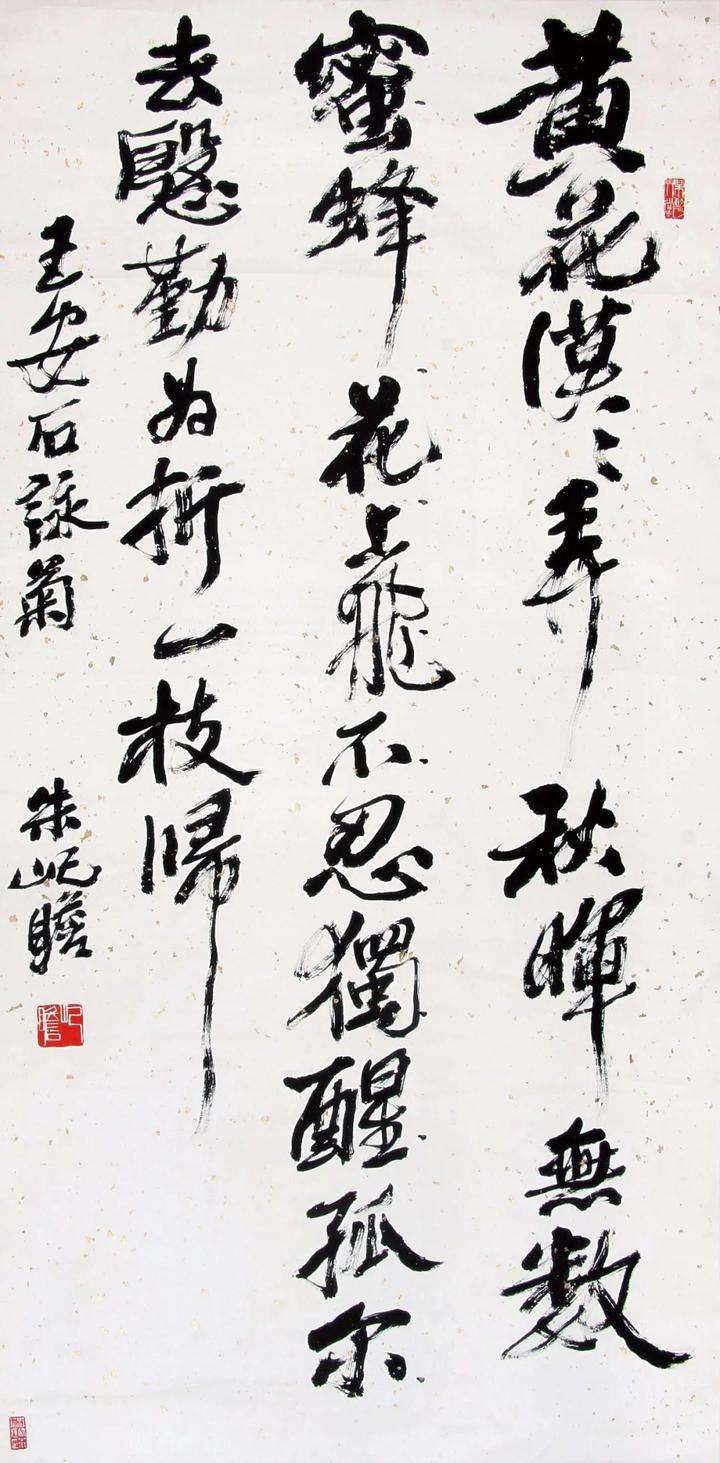 黄花漠〻弄秋暉無数
蜜蜂花上飛不忍獨醒孤尔
去慇勤为折一枝歸
王安石詠菊
朱屺瞻
屺瞻